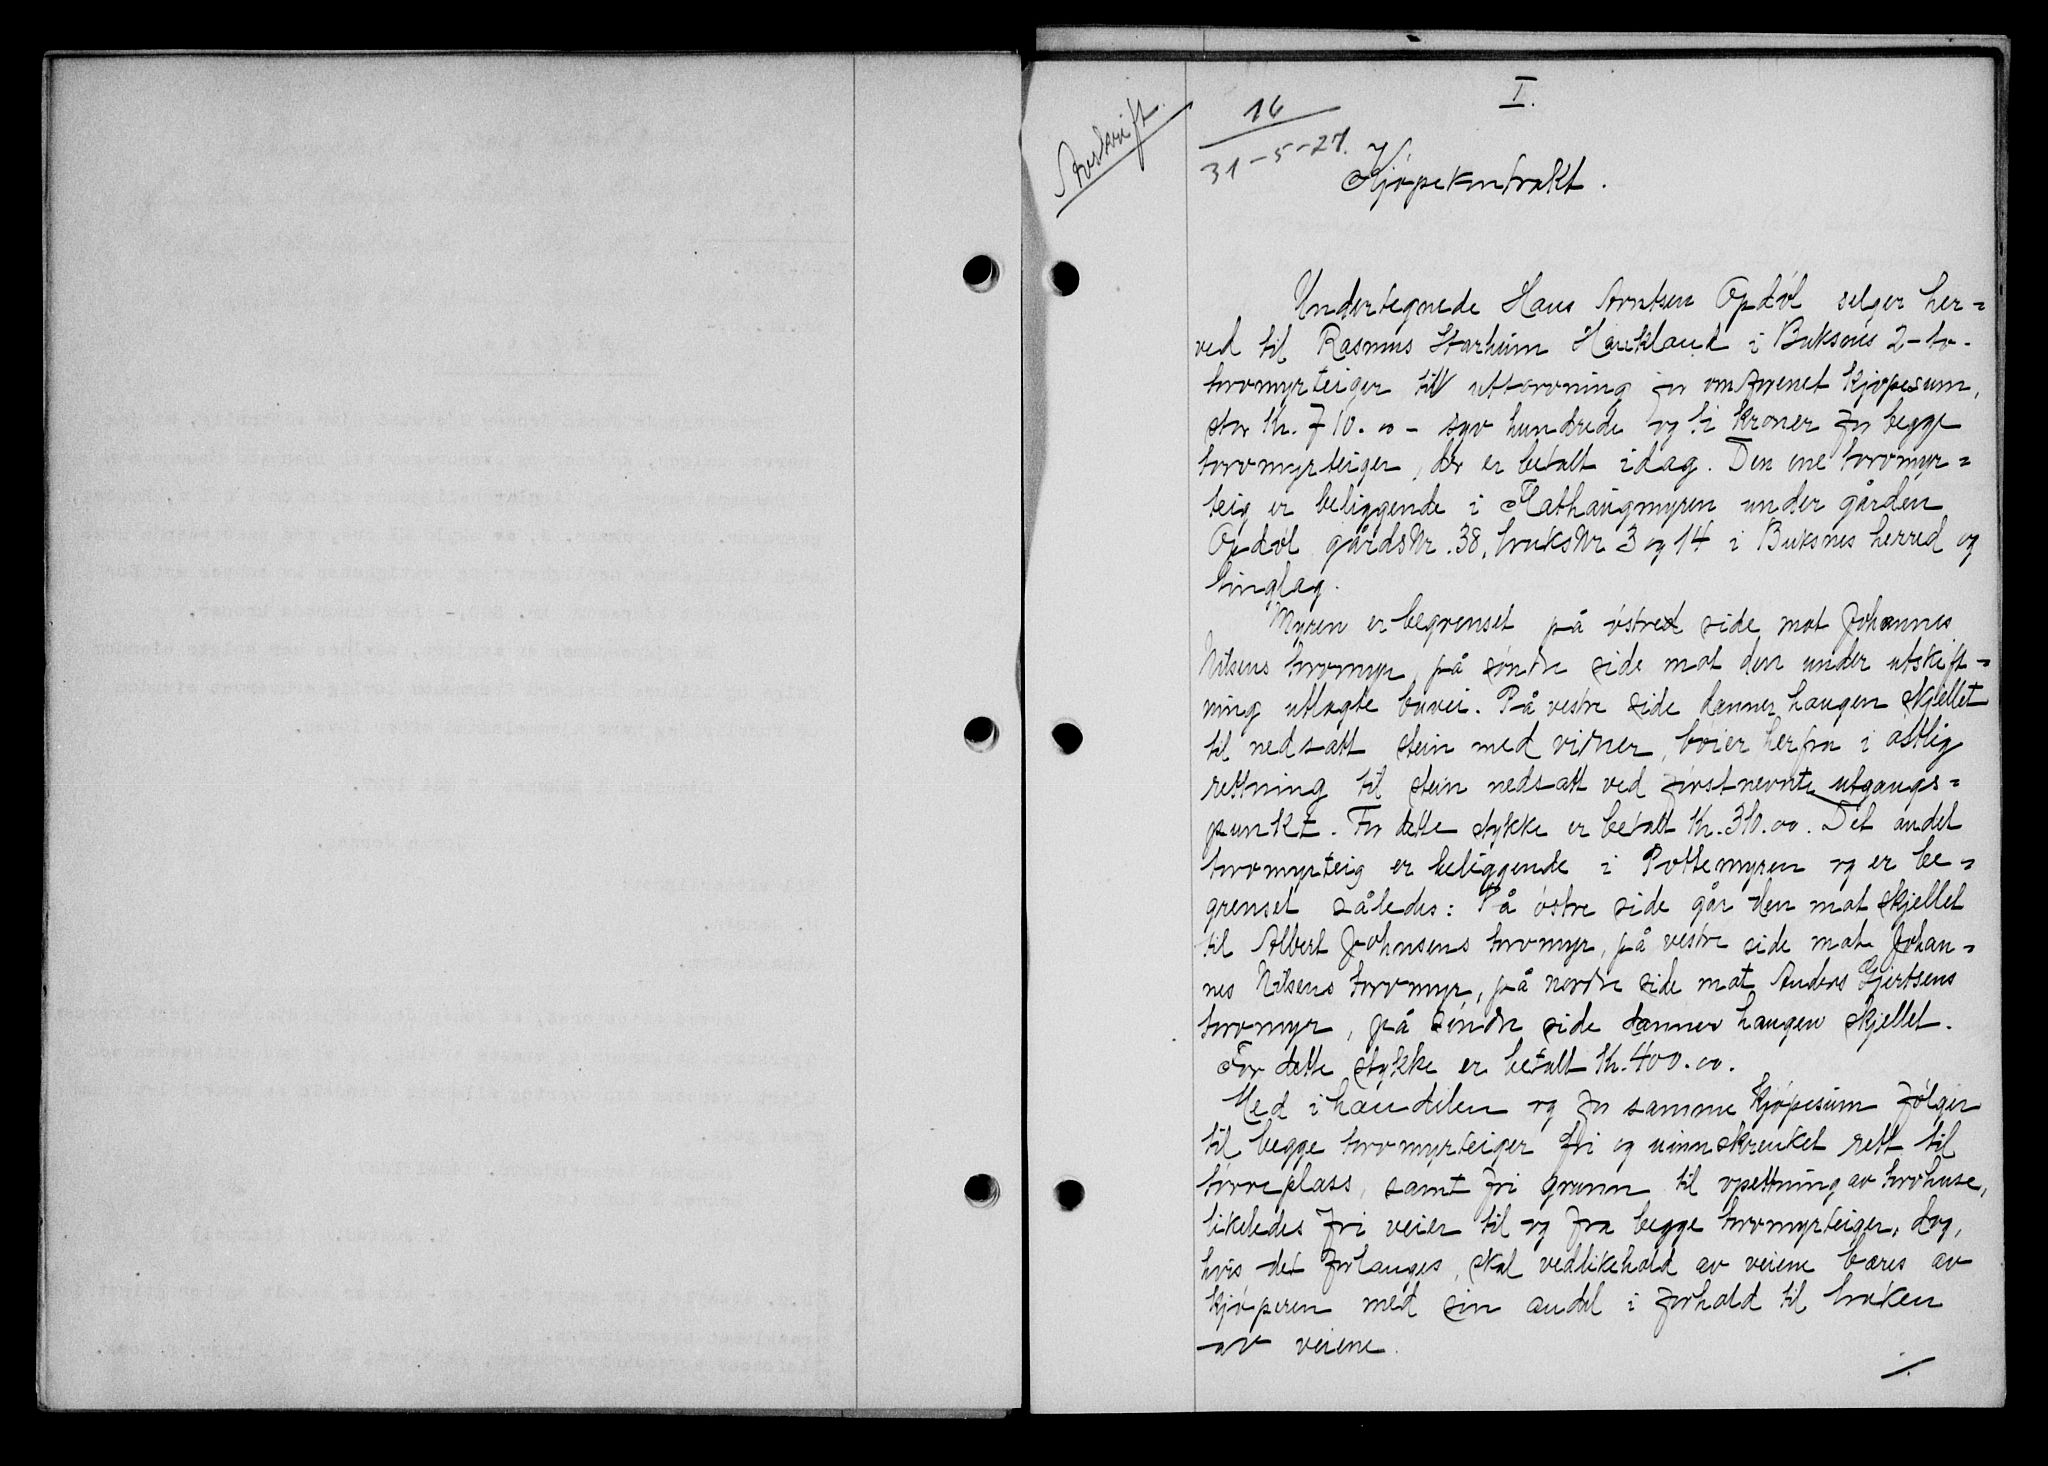 I.
Avskrift.
16
31-5-27.
Kjøpekontrakt.
Undertegnede Hans Arntsen Opdøl selger her=
ved til Rasmus Starheim Haukland i Buksnes 2-to-
torvmyrteiger til uttorvning for omforenet kjøpesum,
stor kr. 710.00 - syv hundrede og ti kroner for begge
torvmyrteiger, der er betalt idag. Den ene torvmyr=
teig er beliggende i Flathaugmyren under gården
Opdøl gårdsnr. 38, bruksnr 3 og 14 i Buksnes herred og
tinglag.
Myren er begrenset på østred side mot Johannes
Nilsens torvmyr, på søndre side mot den under utskift-
ning utlagte buvei. På vestre side danner haugen skjellet
til nedsatt stein med vidner, boier herfra i østlig
rettning til stein nedsatt ved førstnevnte utgangs=
punkt. For dette stykke er betalt kr. 310.00. Det andet
torvmyrteig er beliggende i Pottemyren og er be-
grenset således: På østre side går den mot skjellet
til Albert Johnsens torvmyr, på vestre side mot Johan-
nes Nilsens torvmyr, på nordre side mot Anders Gjertsens
torvmyr, på søndre side danner haugen skjellet.
For dette stykke er betalt kr. 400.00.
Med i handelen og for samme kjøpesum følger
til begge torvmyrteiger fri og uinnskrenket rett til
tørreplass, samt fri grunn til opsettning av torvhuse,
likeledes fri veier til og fra begge torvmyrteiger, dog,
hvis det forlanges, skal vedlikehold av veiene bæres av
kjøperen med sin andel i forhold til bruken
av veiene.
./.